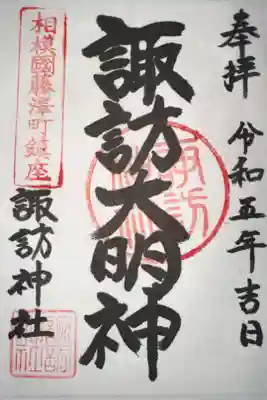 奉拝 令和五年吉日
諏訪大明神
相模國藤澤町鎮座
諏訪神社